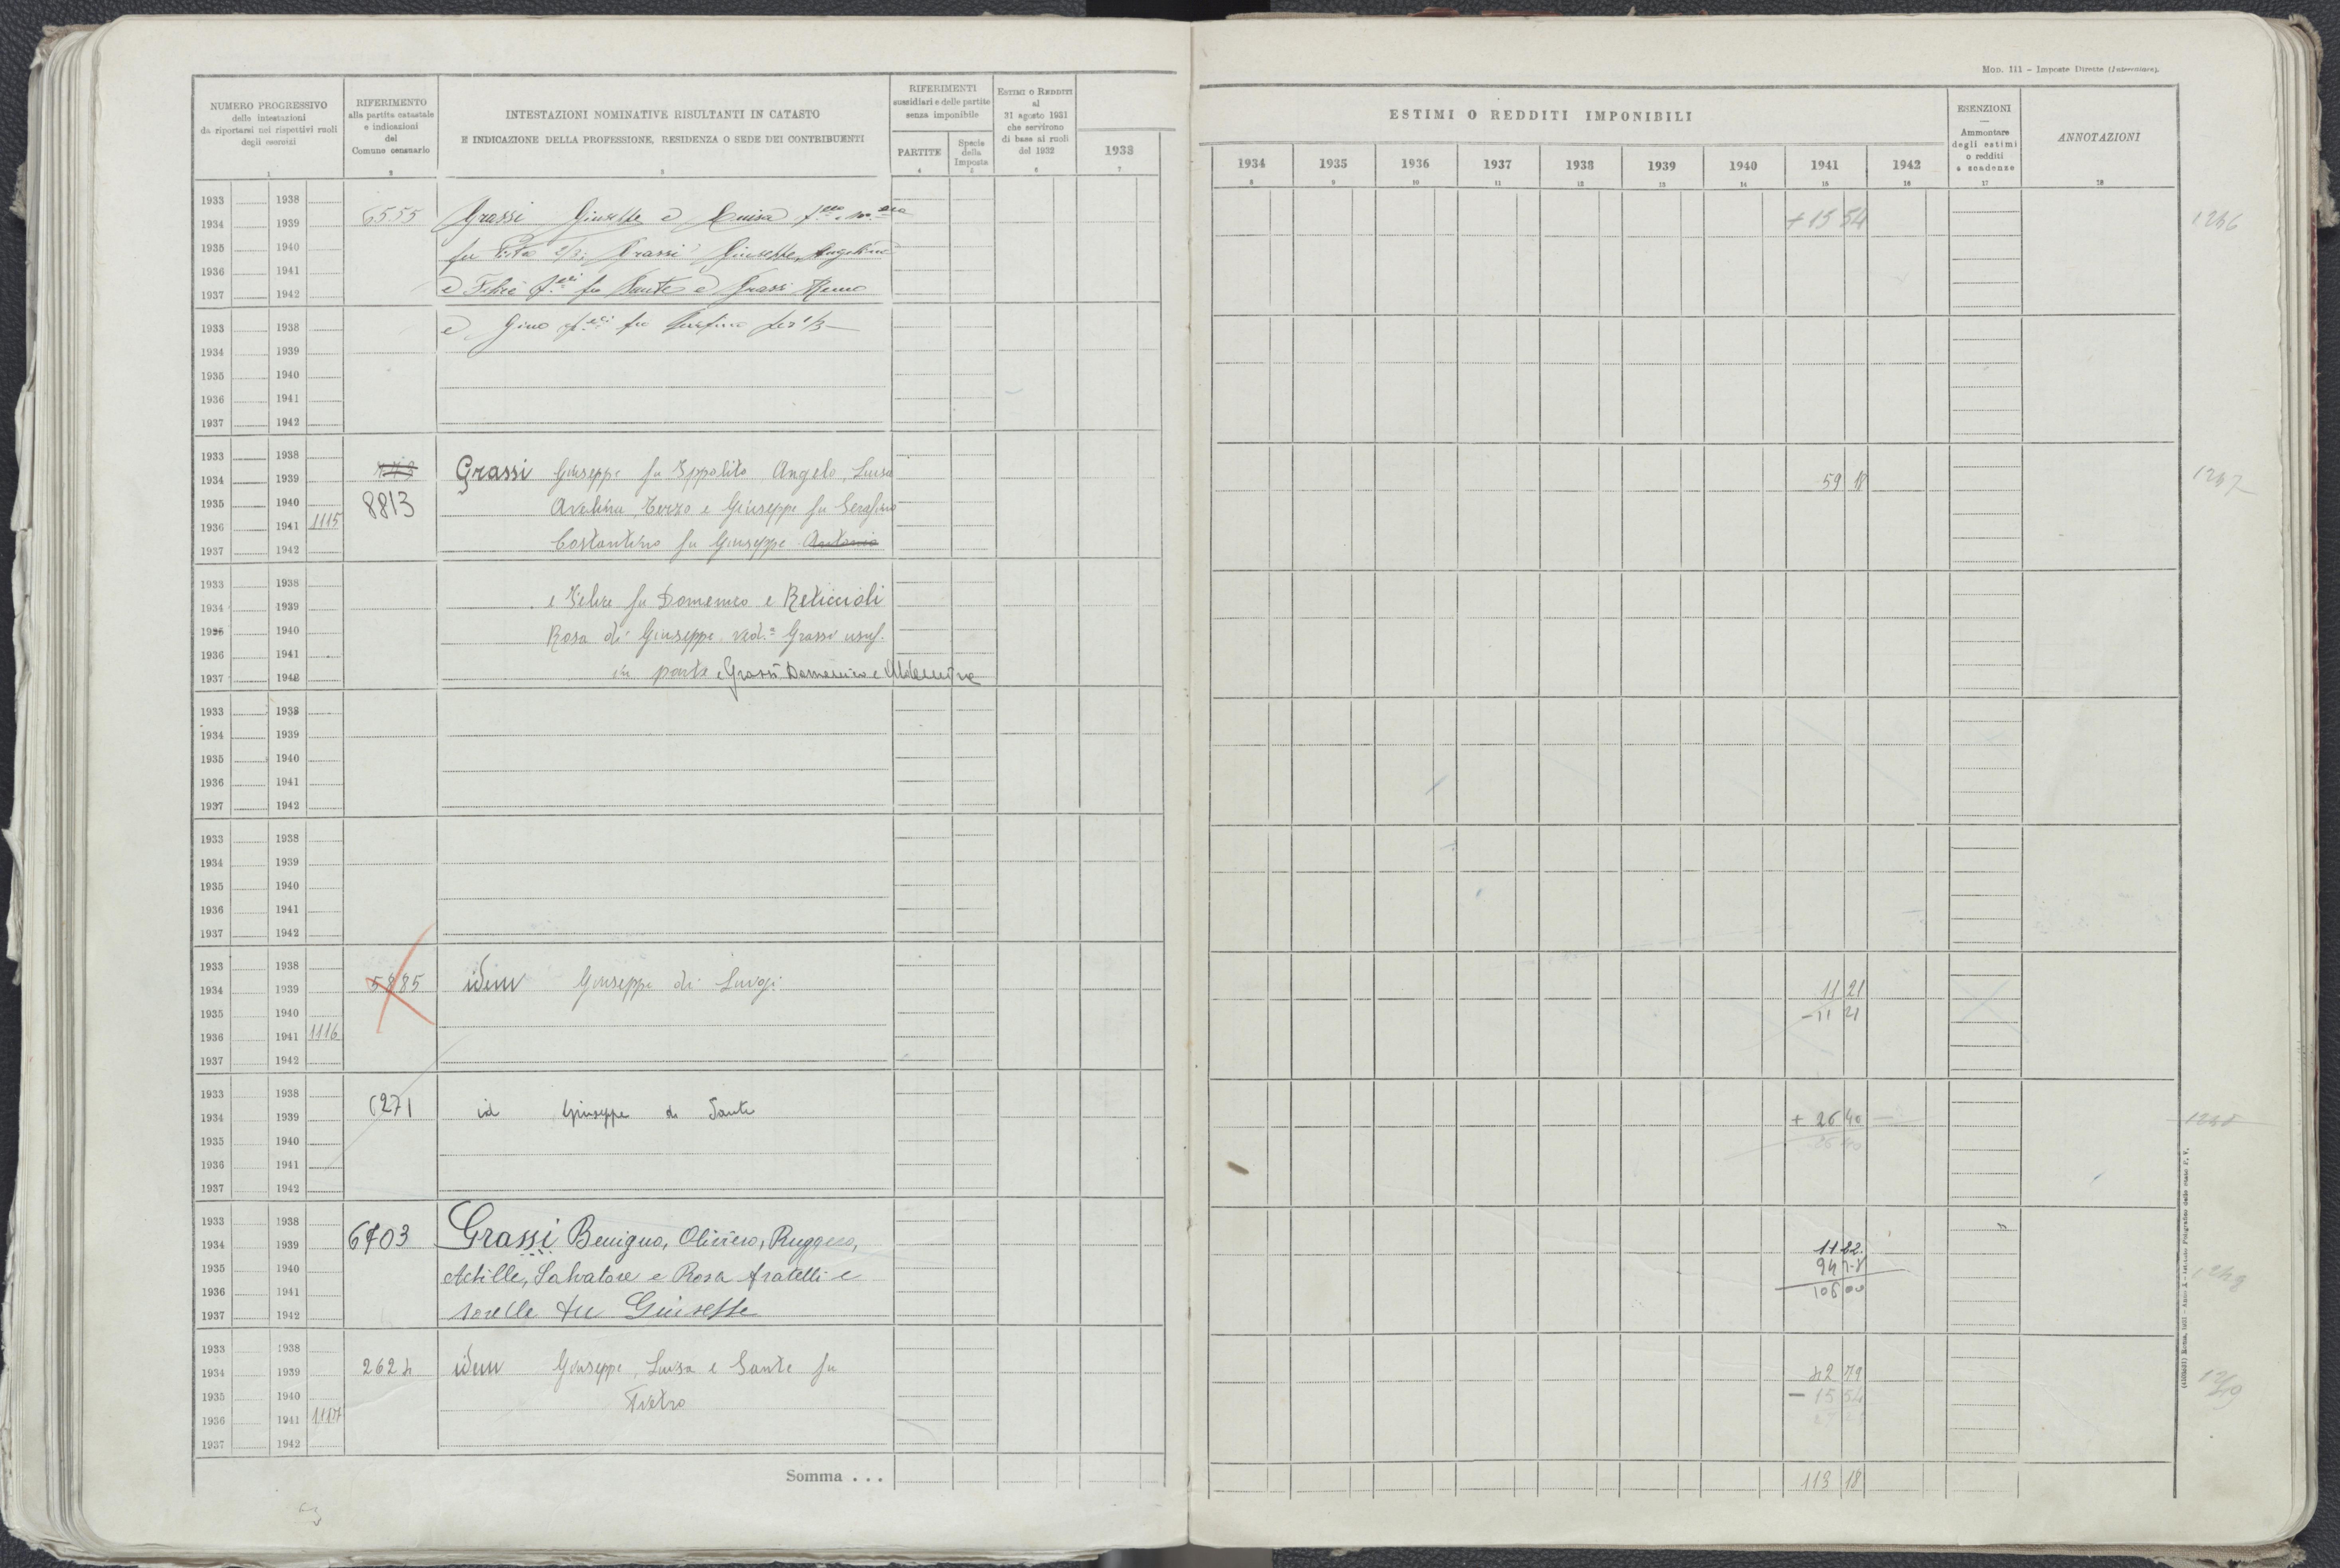 Mod. 111 - Imposte Dirette (Intercalare).
NUMERO PROGRESSIVO
delle intestazioni
da riportarsi nei rispettivi ruoli
degli esercizi
1
RIFERIMENTO
alla partita catastale
e indicazioni
del
Comune censuario
2
INTESTAZIONI NOMINATIVE RISULTANTI IN CATASTO
E INDICAZIONE DELLA PROFESSIONE, RESIDENZA O SEDE DEI CONTRIBUENTI
3
RIFERIMENTI
sussidiari e delle partite
senza imponibile
PARTITE
4
Specie
della
Imposta
5
Estimi o Redditi
al
31 agosto 1931
che servirono
di base ai ruoli
del 1932
6
1933
7
ESTIMI O REDDITI IMPONIBILI
1934 1935 1936 1937 1938 1939 1940 1941 1942
8 9 10 11 12 13 14 15 16
ESENZIONI
—
Ammontare
degli estimi
o redditi
e scadenze
17
ANNOTAZIONI
18
1933 1938
1934 1939 6555 Grassi Giuseppe e Luisa + 15 54 1246
1935 1940 fu Grassi Giuseppe,
1936 1941 e fu Sante e Grassi Remo
1937 1942
1933 1938 e Gino fu per 1/3
1934 1939
1935 1940
1936 1941
1937 1942
1933 1938
1934 1939 Grassi Giuseppe fu Ippolito, Angelo, Luisa 59 18 1247
1935 1940 8813 Avelina, Terzo e Giuseppe fu Serafino
1936 1941 1115
1937 1942 Costantino fu Giuseppe Antonio
1933 1938
1934 1939 e Felice fu Domenico e Reticcioli
1935 1940 Rosa di Giuseppe ved.a Grassi usuf.
1936 1941
1937 1942 in parte e Grassi Domenico e
1933 1938
1934 1939
1935 1940
1936 1941
1937 1942
1933 1938
1934 1939
1935 1940
1936 1941
1937 1942
1933 1938
1934 1939 5885 idem Giuseppe di Luigi 11 21
1935 1940 - 11 21
1936 1941 1116
1937 1942
1933 1938
1934 1939 6271 id Giuseppe di Sante + 26 40
1935 1940 26 40
1936 1941
1937 1942
1933 1938
1934 1939 6703 Grassi Benigno, Oliviero, Ruggero,
1935 1940 Achille, Salvatore e Rosa fratelli e
1936 1941 106 00
1937 1942 sorelle fu Giuseppe
1933 1938
1934 1939 2624 idem Giuseppe, Luisa e Sante fu 42 79
1935 1940 Pietro - 15 54
1936 1941 1117
1937 1942
Somma . . . 113 18